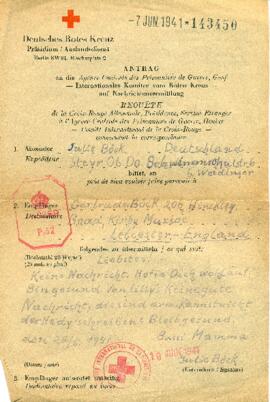 -7 JUN 1941 * 143450
Deutsches Rotes Kreuz
Präsidium / Auslandsdienst
Berlin SW 61, Blücherplatz 2
ANTRAG
an die Agence Centrale des Prisonniers de Guerre, Genf
— Internationales Komitee vom Roten Kreuz —
auf Nachrichtenvermittlung
REQUÊTE
de la Croix-Rouge Allemande, Présidence, Service Etranger
à l'Agence Centrale des Prisonniers de Guerre, Genève
— Comité International de la Croix-Rouge —
concernant la correspondance
1. Absender Julie Böck, Deutschland
Expéditeur Steyr Ob. Do.
bittet, an
prie de bien vouloir faire parvenir à
2. Empfänger Gertrude Böck 206 Hinckley
Destinataire Road, Kirby Muxloe
Leicester-England
P.52
folgendes zu übermitteln / ce qui suit:
(Höchstzahl 25 Worte)
(25 mots au plus)
Liebstes!
Keine Nachricht. Hoffe Dich wohlauf.
Bin gesund. Von Lilly keine gute
Nachricht,
schreiben! Bleib gesund.
Bussi Mamma
Julie Böck
(Datum / date)
(Unterschrift / Signature)
3. Empfänger antwortet umseitig
Destinataire répond au verso